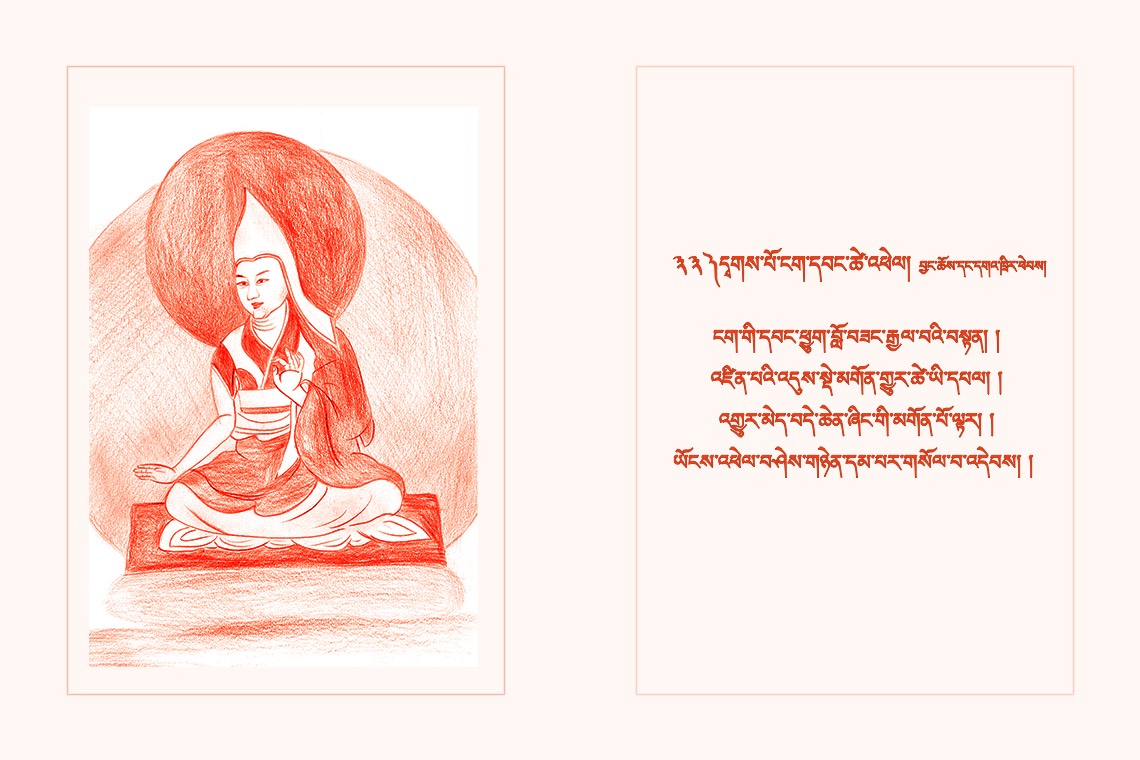 ༢༢ ༽དྭགས་པོ་ངག་དབང་ཚེ་འཕེལ། བྱང་ཆོས་དང་དགའ་ཁྲིར་ཕེབས།
ངག་གི་དབང་ཕྱུག་བློ་བཟང་རྒྱལ་བའི་བསྟན། །
འཛིན་པའི་འདུས་སྡེ་མགོན་གྱུར་ཚེ་ཡི་དཔལ། །
འགྱུར་མེད་བདེ་ཆེན་ཞིང་གི་མགོན་པོ་ལྟར། །
ཡོངས་འཕེལ་བཤེས་གཉེན་དམ་པར་གསོལ་བ་འདེབས། །